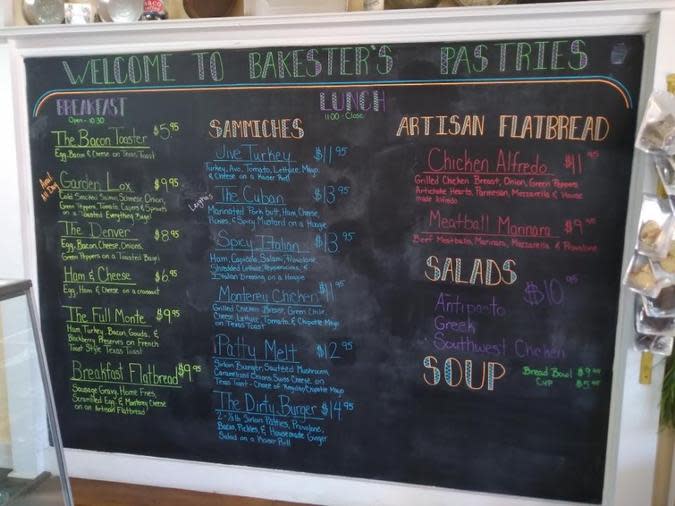 WELCOME TO BAKESTER'S PASTRIES
BREAKFAST
Open - 10:30
The Bacon Toaster $5.95
Egg, Bacon & Cheese on Texas Toast
Garden Lox $9.95
Cold Smoked Salmon, Onion,
Green Peppers, Tomato, Capers & Sprouts
on a Toasted Everything Bagel
The Denver $8.95
Egg, Bacon, Cheese, Onions,
Green Peppers on a Toasted Bagel
Ham & Cheese $6.95
Egg, Ham & Cheese on a croissant
The Full Monte $9.95
Ham, Turkey, Bacon, Gouda, &
Blackberry Preserves on French
Toast Style Texas Toast
Breakfast Flatbread $9.95
Sausage Gravy, Home Fries,
Scrambled Egg & Monterey Cheese
on an Artisan Flatbread
LUNCH
11:00 - Close
SAMMICHES
Jive Turkey $11.95
Turkey, Avo, Tomato, Lettuce, Mayo
& Cheese on a Kaiser Roll
The Cuban $13.95
Marinated Pork butt, Ham, Cheese,
Pickles, & Spicy Mustard on a Hoagie
Spicy Italian $13.95
Ham, Capicola, Salami, Provolone
Shredded Lettuce, Pepperoncini, &
Italian Dressing on a Hoagie
Monterey Chicken $11.95
Grilled Chicken Breast, Green Chile,
Cheese, Lettuce, Tomato, & Chipotle Mayo
on Texas Toast
Patty Melt $12.95
Sirloin Burger, Sautéed Mushroom,
Caramelized Onions, Swiss Cheese, on
Texas Toast - Choice of Reg/Chipotle Mayo
The Dirty Burger $14.95
2- 1/3 lb Sirloin Patties, Provolone,
Bacon, Pickles, & Housemade Ginger
Salad on a Kaiser Roll
ARTISAN FLATBREAD
Chicken Alfredo $11.95
Grilled Chicken Breast, Onion, Green Peppers
Artichoke Hearts, Parmesan, Mozzarella & House
made Alfredo
Meatball Marinara $9.95
Beef Meatballs, Marinara, Mozzarella, & Provolone
SALADS $10.95
Antipasto
Greek
Southwest Chicken
SOUP
Bread Bowl $9.95
Cup $5.95